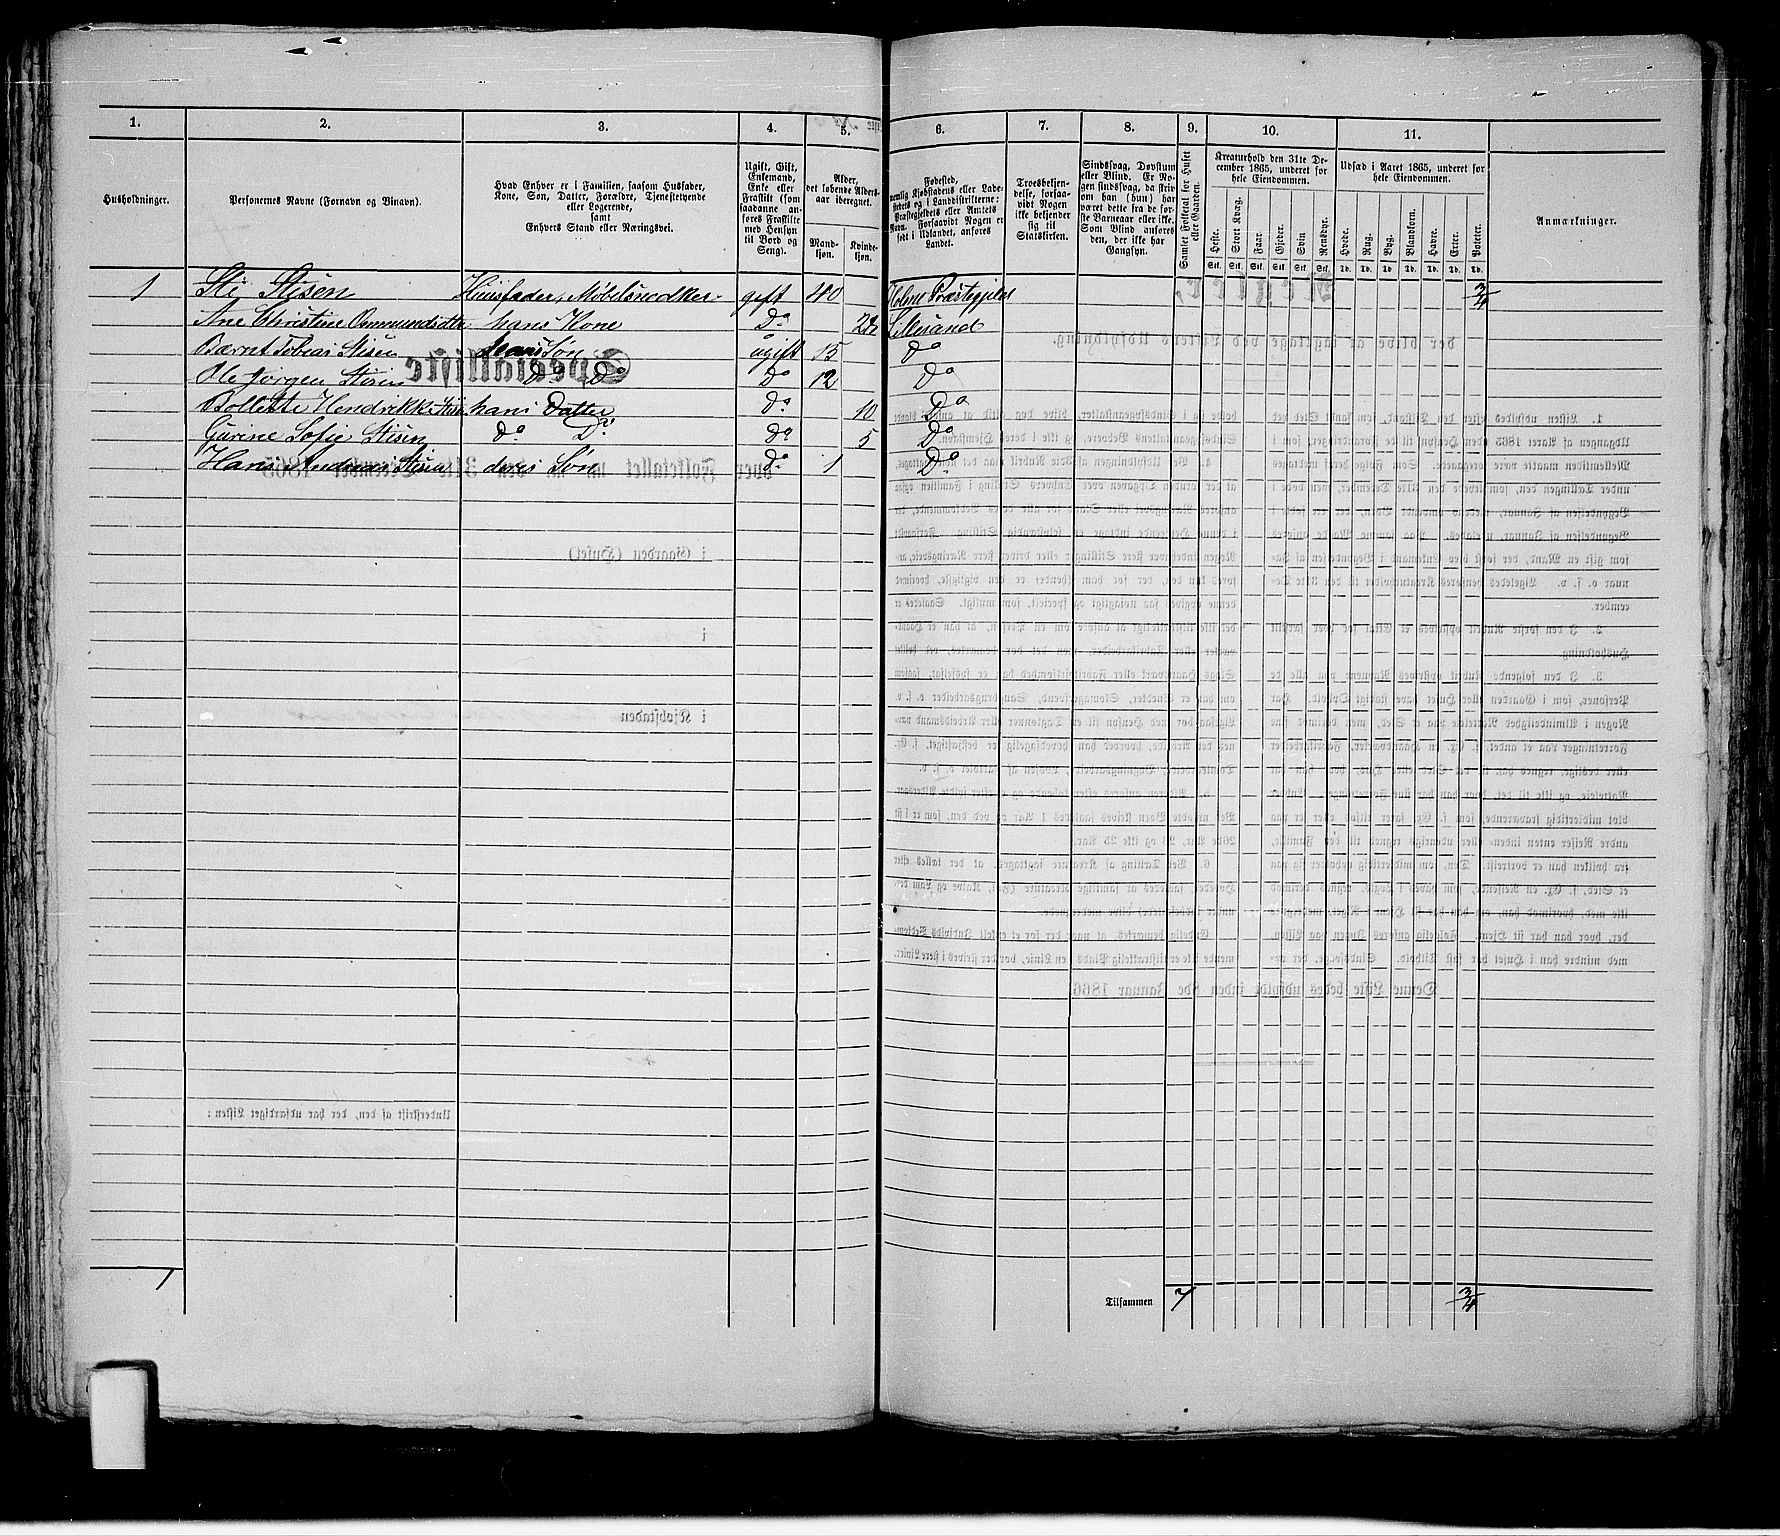 1. 2. 3. 4. 5. 6. 7. 8. 9. 10. 11.
Husholdninger.
Personernes Navne (Fornavn og Vinavn).
Hvad Enhver er i Familien, saasom Husfader,
Kone, Søn, Datter, Forældre, Tjenestetyende
eller Logerende,
samt
Enhvers Stand eller Næringsvei.
Ugift, Gift,
Enkemand,
Enke eller
Fraskilt (som
saadanne an-
føres Fraskilte
med Hensyn
til Bord og
Seng).
Alder,
det løbende Alders-
aar iberegnet.
Mand-
kjøn.
Kvinde-
kjøn.
Fødested,
nemlig Kjøbstadens eller Lade-
stedets og i Landdistrikterne:
Præstegjeldets eller Amtets
Navn. Forsaavidt Nogen er
født i Udlandet, anføres
Landet.
Troesbekjen-
delse, forsaa-
vidt Nogen
ikke bekjender
sig til
Statskirken.
Sindssvag, Døvstum
eller Blind. Er No-
gen sindssvag, da skriv
om han (hun) har
været dette fra de før-
ste Barneaar eller ikke.
Som Blind anføres
den, der ikke har
Gangsyn.
Samlet Folketal for Huset
eller Gaarden.
Kreaturhold den 31te De-
cember 1865, underet for
hele Eiendommen.
Heste. Stort Kvæg. Faar. Gjeder. Svin Rensdyr.
Stk. Stk. Stk. Stk. Stk. Stk.
Udsæd i Aaret 1865, underet for
hele Eiendommen.
Hvede. Rug. Byg. Blandkorn. Havre. Erter. Poteter.
Td. Td. Td. Td. Td. Td. Td.
Anmærkninger.
1 Sti Stisen Huusfader, Møbelsnedker gift 40 Holme Præstegjeld 3/4
Ane Christine Ommundsdtr hans Kone Do Lillesand
Bærnt Tobias Stisen Søn ugift 15 Do
Ole Jørgen Stisen Do Do Do 12 Do
Bollette Hendrikke Stisen hans Datter Do 10 Do
Gurine Sofie Stisen Do Do Do 5 Do
Hans Andreas Stisen deres Søn Do 1 Do
1 Tilsammen 7 3/4